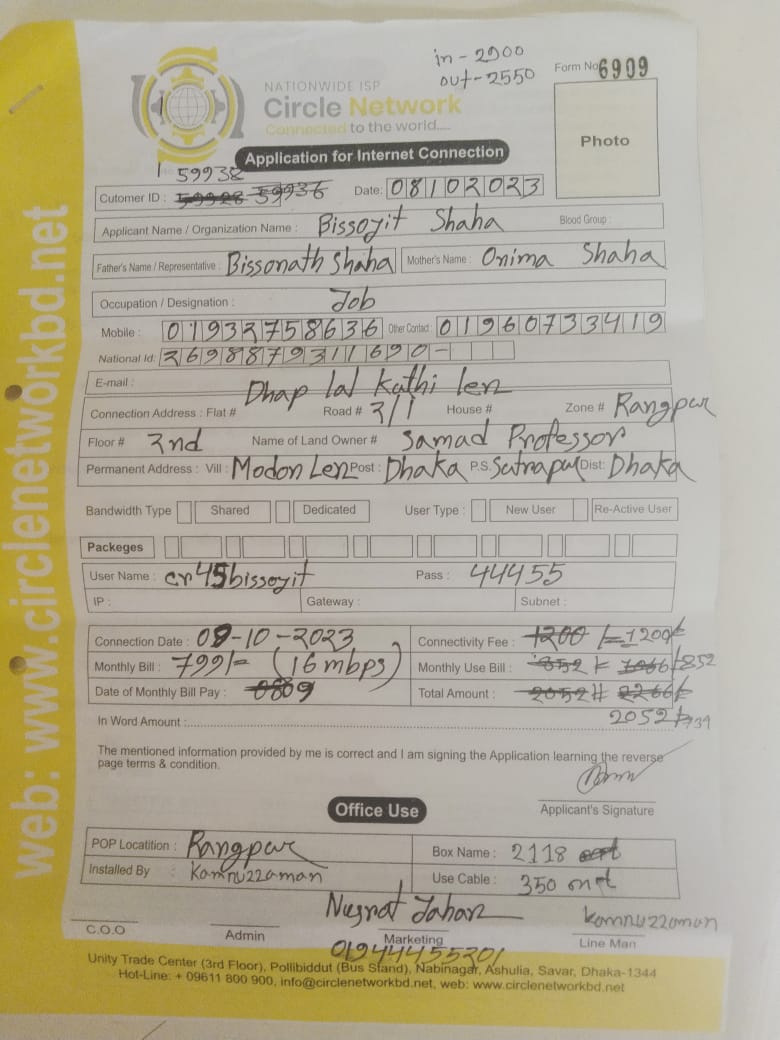 in - 2900
out - 2550
Form No 6909
NATIONWIDE ISP
Circle Network
Connected to the world....
Photo
Application for Internet Connection
59938
Cutomer ID : 59928 59936 Date: 08102023
Applicant Name / Organization Name : Bissojit Shaha Blood Group :
Father's Name / Representative : Bissonath Shaha Mother's Name : Onima Shaha
Occupation / Designation : Job
Mobile : 01932758636 Other Contact: 01960733419
National Id: 2698879311690-
E-mail :
Dhap lal kathi len
Connection Address : Flat # Road # 3/1 House # Zone # Rangpur
Floor # 2nd Name of Land Owner # Samad Professor
Permanent Address : Vill : Modon Len Post : Dhaka P.S. Dist: Dhaka
Bandwidth Type Shared Dedicated User Type : New User Re-Active User
Packeges
User Name : cn45bissojit Pass : 44455
IP : Gateway : Subnet :
Connection Date : 09-10-2023 Connectivity Fee : 1200 /= 1200/=
Monthly Bill : 799/= (16 mbps) Monthly Use Bill : 852 /= 1066 /852
Date of Monthly Bill Pay : 0809 Total Amount : 2052 2266/=
In Word Amount : 2052/=
The mentioned information provided by me is correct and I am signing the Application learning the reverse
page terms & condition.
Applicant's Signature
Office Use
POP Locatition : Rangpur Box Name : 2118
Installed By : Kamruzzaman Use Cable : 350 mt
Nusrat Jahan kamruzzaman
C.O.O Admin Marketing Line Man
01944455201
Unity Trade Center (3rd Floor), Pollibiddut (Bus Stand), Nabinagar, Ashulia, Savar, Dhaka-1344
Hot-Line: + 09611 800 900, info@circlenetworkbd.net, web: www.circlenetworkbd.net
web: www.circlenetworkbd.net